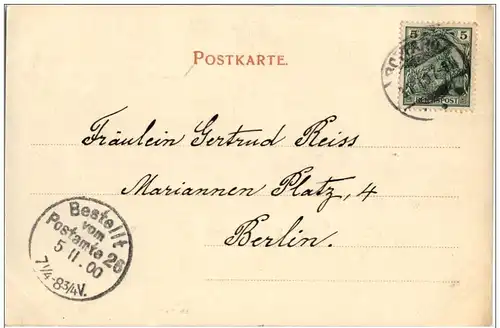 POSTKARTE.
5 5
REICHSPOST
Fräulein Gertrud Reiss
Mariannen Platz, 4
Berlin.
Bestellt
vom
Postamte 26
5 11.00
7 1/4-8 3/4 V.